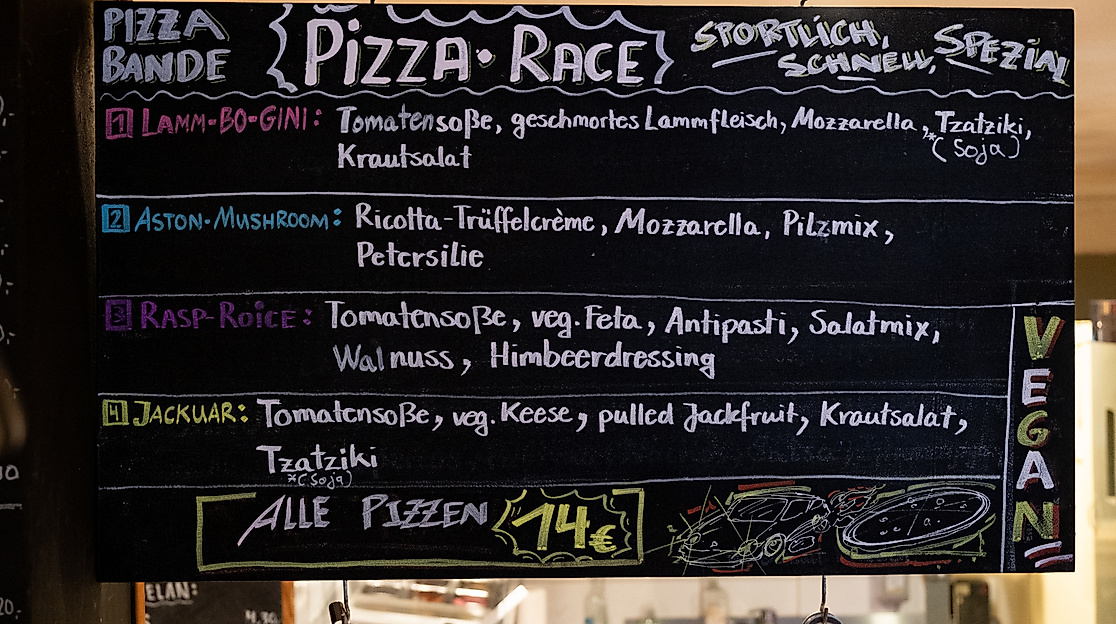 PIZZA BANDE
PIZZA · RACE
SPORTLICH, SCHNELL, SPEZIAL
1 LAMM-BO-GINI: Tomatensoße, geschmortes Lammfleisch, Mozzarella, Tzatziki,
*(Soja)
Krautsalat
2 ASTON-MUSHROOM: Ricotta-Trüffelcrème, Mozzarella, Pilzmix,
Petersilie
3 RASP-ROICE: Tomatensoße, veg. Feta, Antipasti, Salatmix,
Walnuss, Himbeerdressing
4 JACKUAR: Tomatensoße, veg. Keese, pulled Jackfruit, Krautsalat,
Tzatziki
*(Soja)
VEGAN
ALLE PIZZEN 14€
ELAN: